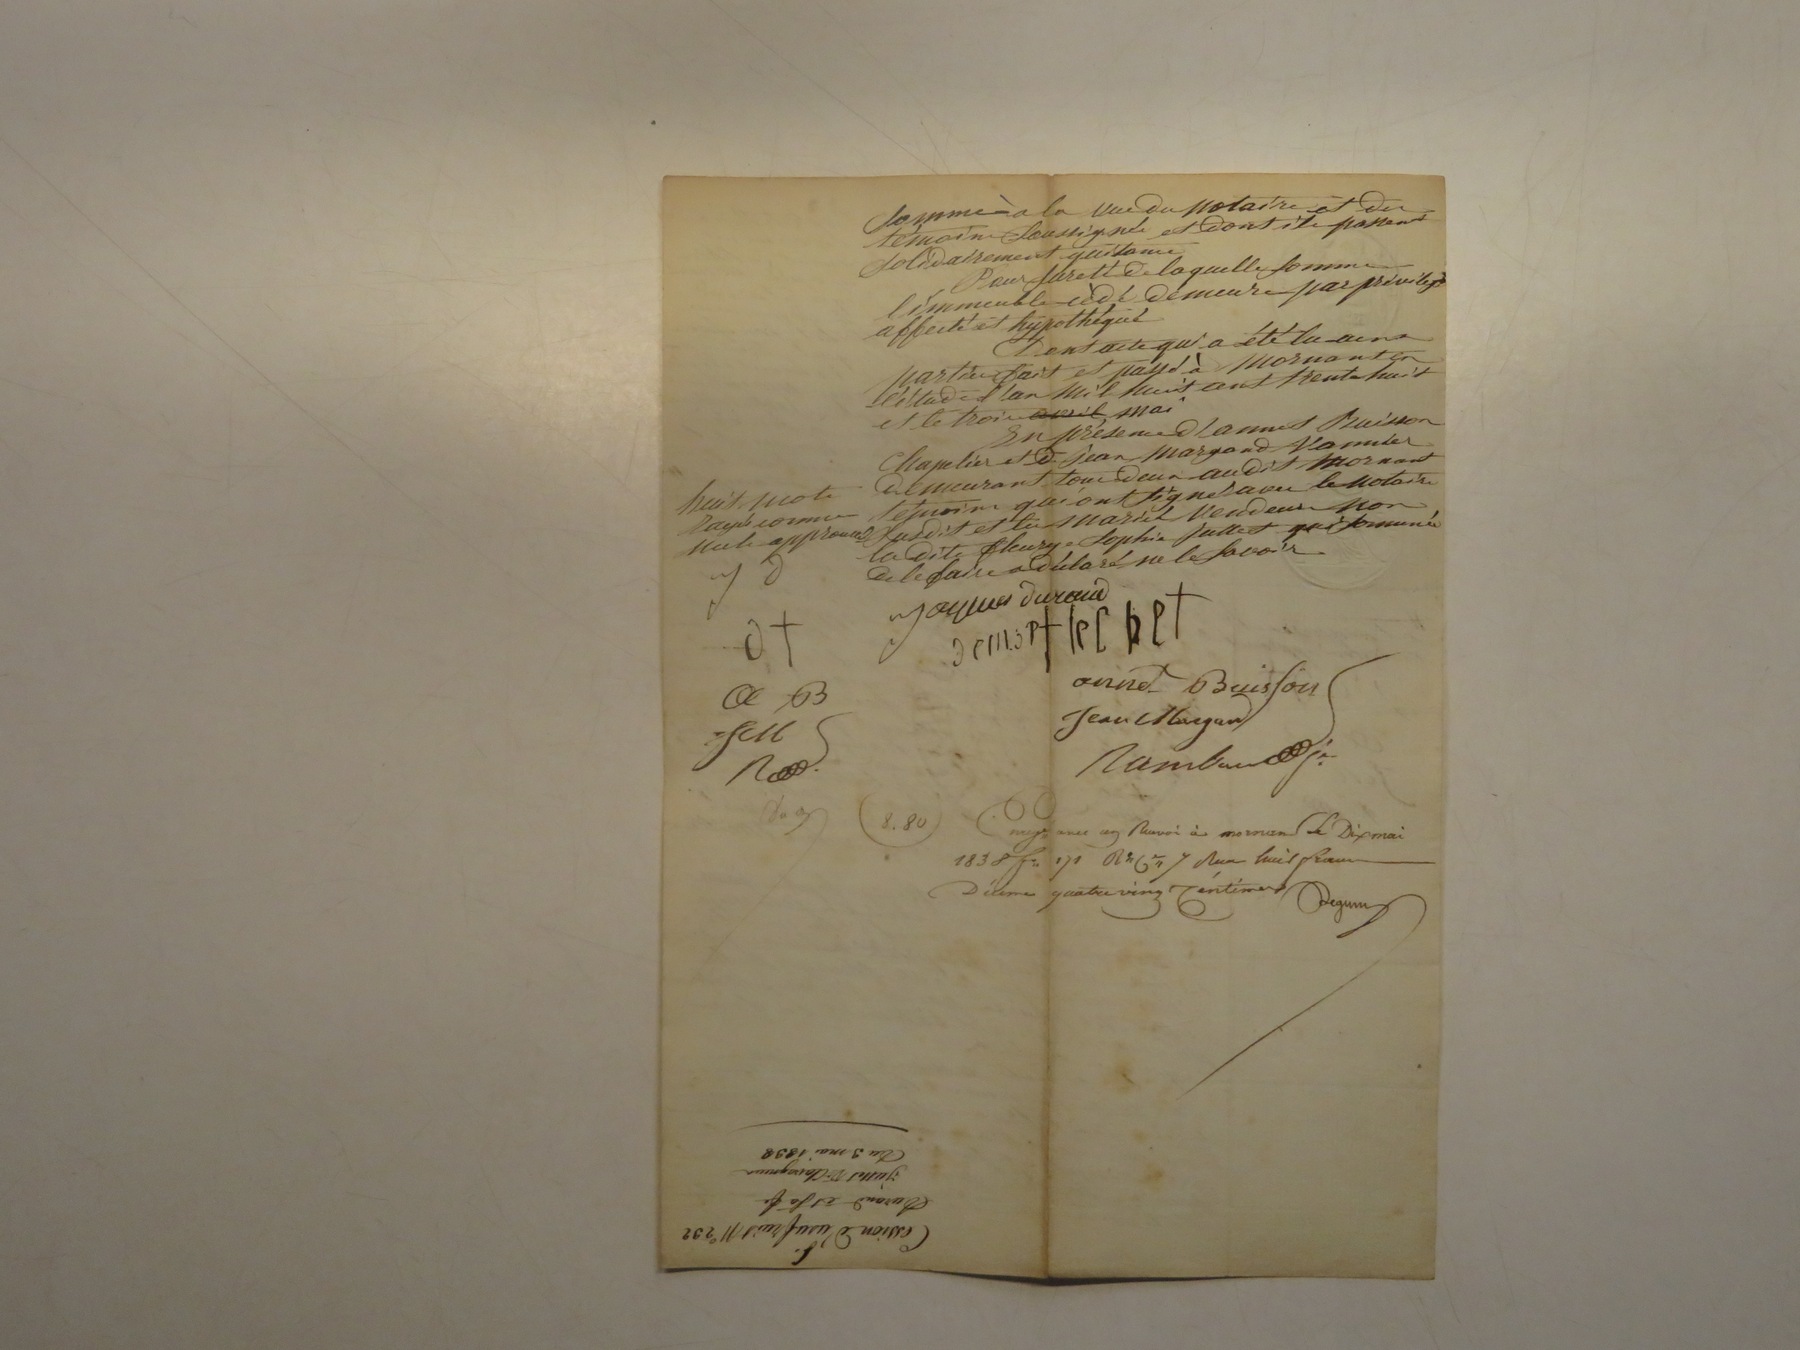 Somme à la vue du notaire et des
témoins soussignés et dont ils passent
solidairement quittance
Pour sureté de laquelle somme
l'immeuble cédé demeure par privilège
affecté et hypothéqué
Dont acte qui a été lu aux
parties fait et passé à Mornant en
l'étude l'an mil huit cent trente huit
et le trois avril mai
En présence d'annet Buisson
Chapelier et de Jean Margand Vannier
demeurant tous deux audit Mornant
témoins qui ont signé avec le notaire
susdit et les mariés Vendeurs non
la dite fleurye Sophie Juttet qui sommée
de le faire a déclaré ne le savoir
huit mots
rayés comme
nuls approuvés
J D
d t
Jaques durand
A B
annet Buisson
J M
Jean Margand
R
Rambaud Jn
(8.80)
à mornant le Dix mai
1838 fo 171 Ro Cn 7 Reçu huit francs
Décime quatre vingt Centimes
Cession d'usufruit No 292
Durand et sa fe
Juttet
Du 3 mai 1838